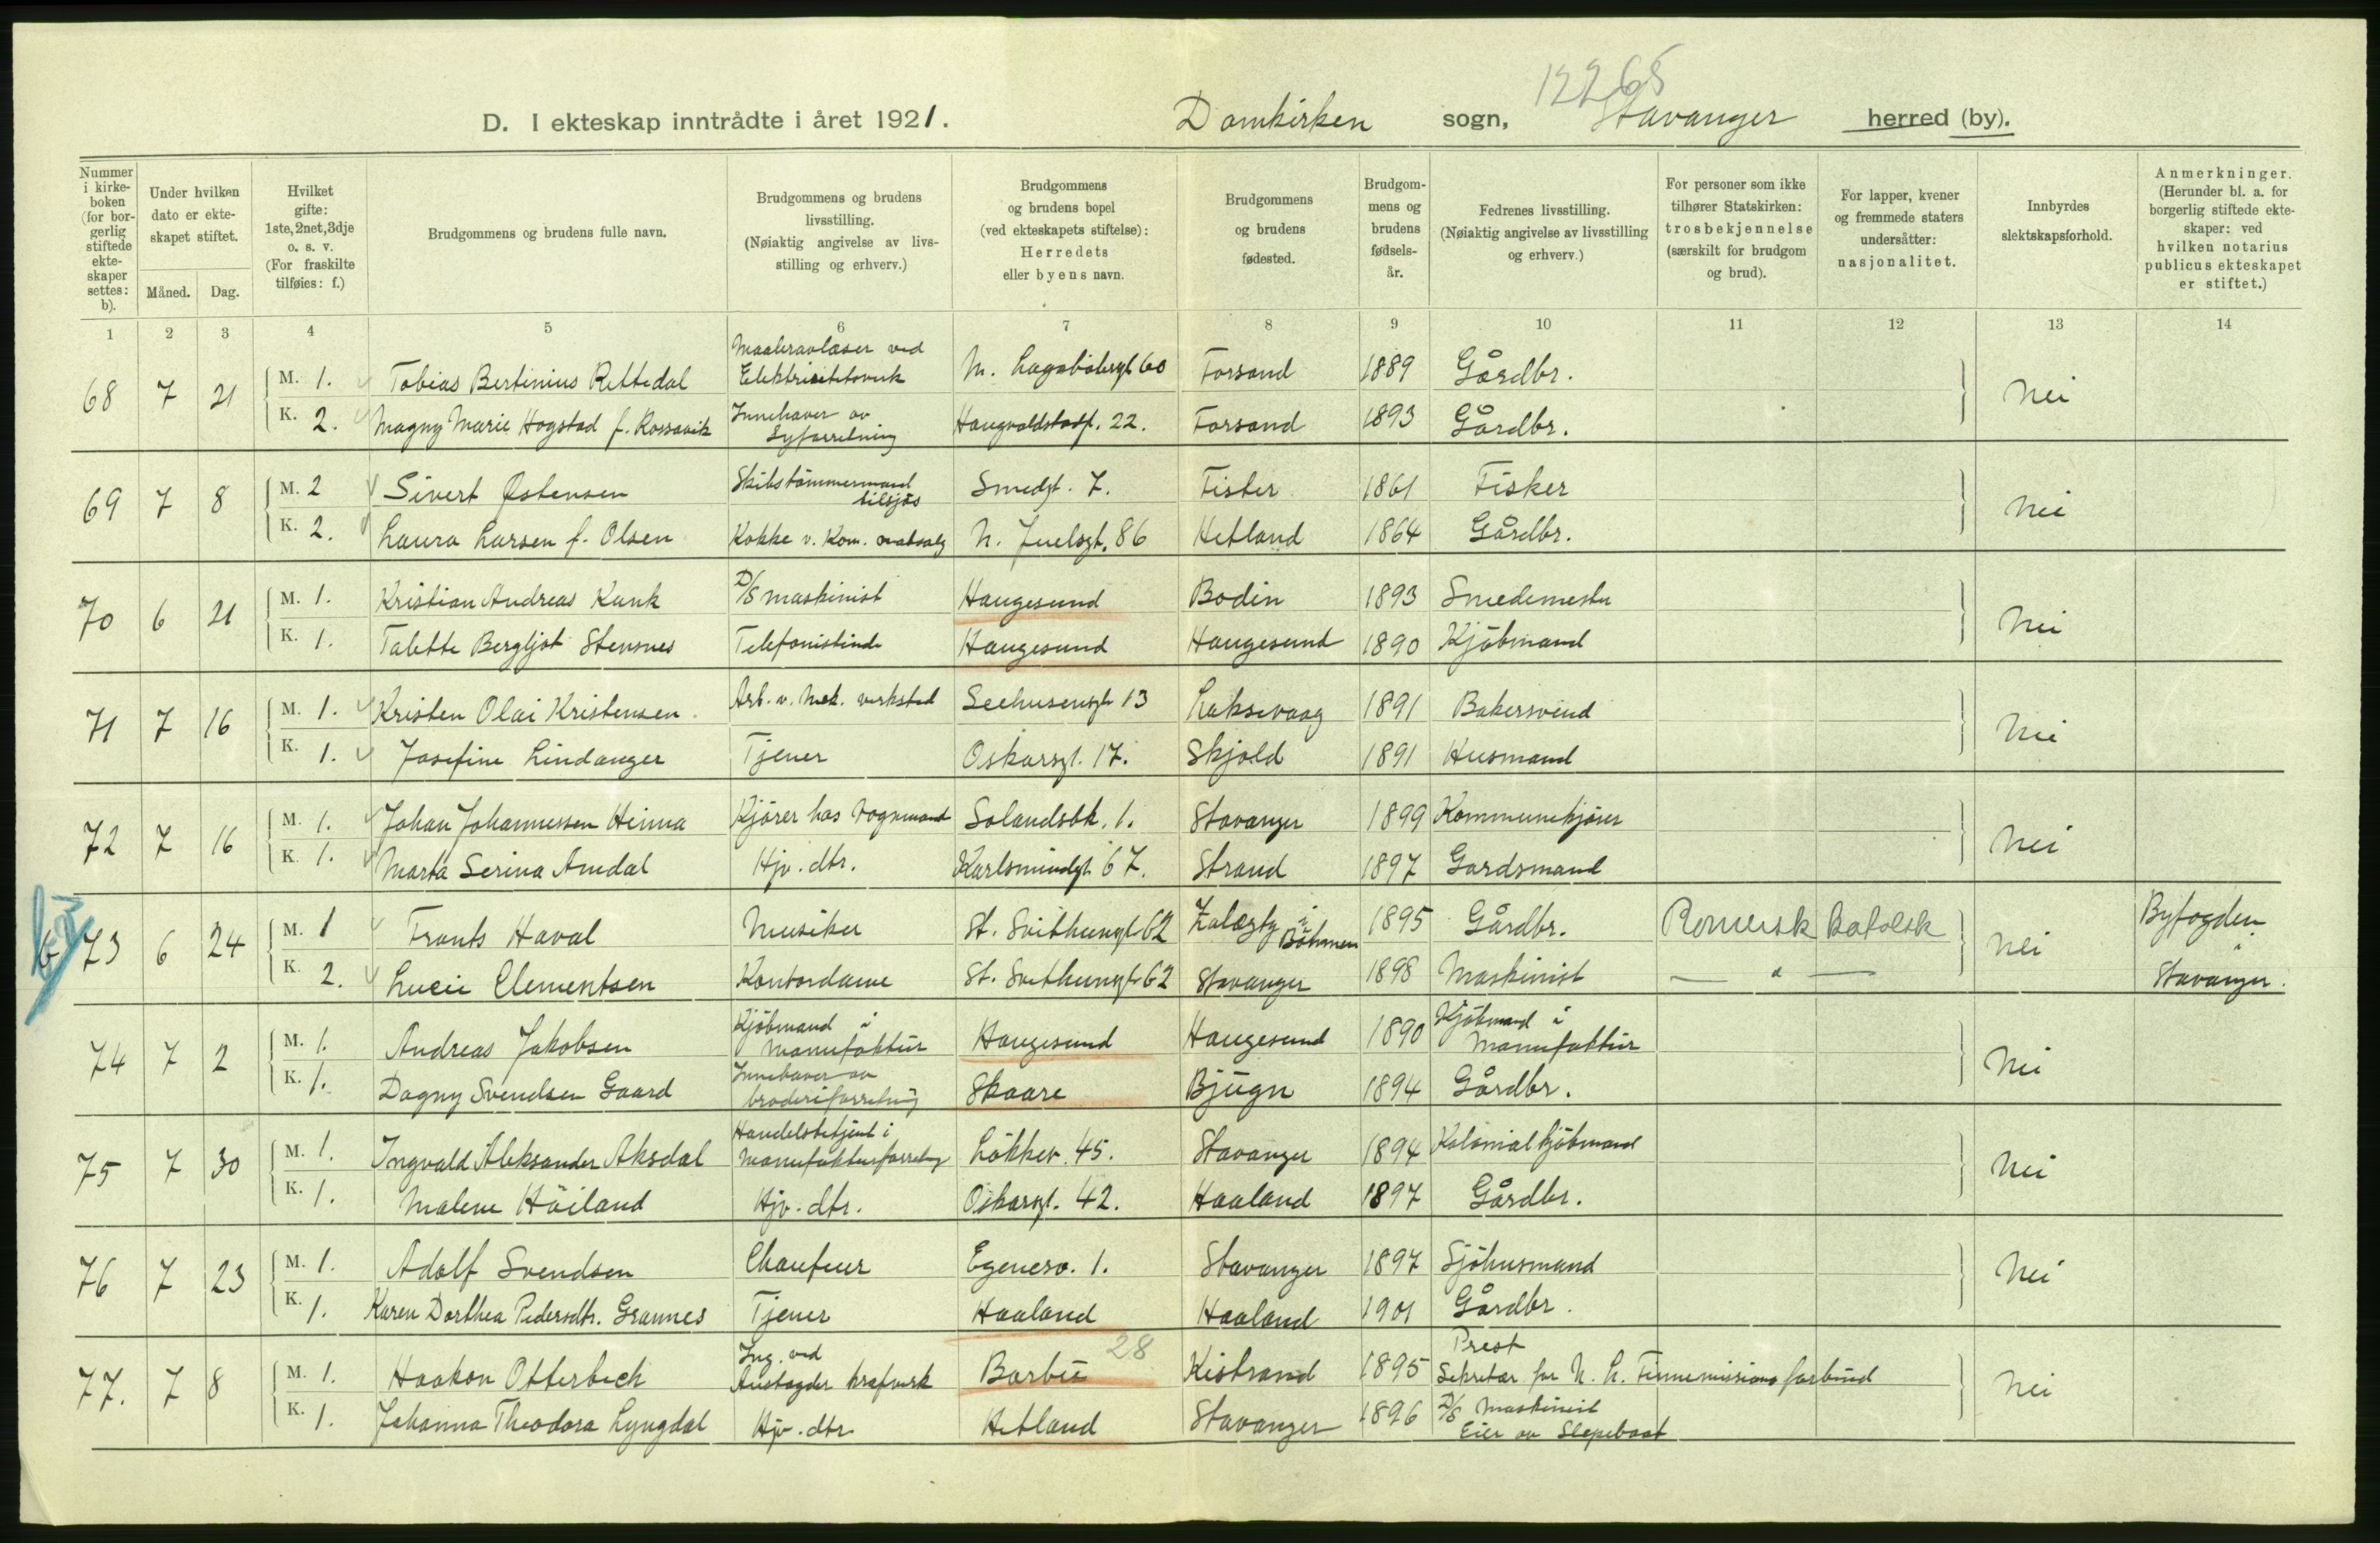 12265
D. I ekteskap inntrådte i året 1921. Domkirken sogn, Stavanger herred (by).
Nummer i kirke-boken (for bor-gerlig stiftede ekte-skaper settes: b).
Under hvilken dato er ekte-skapet stiftet.
Måned. Dag.
Hvilket gifte: 1ste, 2net, 3dje o. s. v. (For fraskilte tilføies: f.)
Brudgommens og brudens fulle navn.
Brudgommens og brudens livsstilling. (Nøiaktig angivelse av livs-stilling og erhverv.)
Brudgommens og brudens bopel (ved ekteskapets stiftelse): Herredets eller byens navn.
Brudgommens og brudens fødested.
Brudgom-mens og brudens fødsels-år.
Fedrenes livsstilling. (Nøiaktig angivelse av livsstilling og erhverv.)
For personer som ikke tilhører Statskirken: trosbekjennelse (særskilt for brudgom og brud).
For lapper, kvener og fremmede staters undersåtter: nasjonalitet.
Innbyrdes slektskapsforhold.
Anmerkninger. (Herunder bl. a. for borgerlig stiftede ekte-skaper: ved hvilken notarius publicus ekteskapet er stiftet.)
1 2 3 4 5 6 7 8 9 10 11 12 13 14
68 7 21 M. 1. Tobias Bertinius Rettedal Maaleravlæser ved Elektricitetsverk Forsand 1889 Gårdbr. Nei
K. 2. Magny Marie Hogstad f. Rossavik Innehaver av Syforretning Haugvaldstadgt. 22. Forsand 1893 Gårdbr.
69 7 8 M. 2 Sivert Østensen Skibstömmermand tilsjøs Smedgt. 7. Fister 1861 Fisker Nei
K. 2. Laura Larsen f. Olsen Kokke v. Kom. matsalg N. Juelsgt. 86 Hetland 1864 Gårdbr.
70 6 21 M. 1. Kristian Andreas Kunk D/S maskinist Haugesund Bodin 1893 Smedemester Nei
K. 1. Talette Bergljot Stensnes Telefonistinde Haugesund Haugesund 1890 Kjöbmand
71 7 16 M. 1. Kristen Olai Kristensen Arb. v. Mek. verksted Seehusensgt 13 Laksevaag 1891 Bakersvend Nei
K. 1. Josefine Lindanger Tjener Oskarsgt. 17. Skjold 1891 Husmand
72 7 16 M. 1. Johan Johannessen Hinna Kjörer hos Vognmand Solandsbk. 1. Stavanger 1899 Kommunekjörer Nei
K. 1. Marta Serina Amdal Hjv. dtr. Karlsmindegt. 67. Strand 1897 Gardsmand
73 6 24 M. 1 Frants Haval Musiker St. Svithunsgt 62 i Böhmen 1895 Gårdbr. Romersk katolsk Nei Byfogden i
K. 2. Lucie Clementsen Kontordame St. Svithunsgt 62 Stavanger 1898 Maskinist — " — Stavanger.
74 7 2 M. 1. Andreas Jakobsen Kjöbmand i Manufaktur Haugesund Haugesund 1890 Kjöbmand i Manufaktur Nei
K. 1. Dagny Svendsen Gaard Innehaver av broderiforretning Skaare Bjugn 1894 Gårdbr.
75 7 30 M. 1. Ingvald Aleksander Aksdal Handelsbetjent i Manufakturforretning Lökkev. 45. Stavanger 1894 Kolonialkjöbmand Nei
K. 1. Malene Höiland Hjv. dtr. Oskarsgt. 42. Haaland 1897 Gårdbr.
76 7 23 M. 1. Adolf Svendsen Chaufeur Egenesv. 1. Stavanger 1897 Sjöhusmand Nei
K. 1. Karen Dorthea Pedersdtr. Grannes Tjener Haaland Haaland 1901 Gårdbr.
28
77. 7 8 M. 1. Haakon Otterbech Ing. ved Austagder krafverk Barbu Kistrand 1895 Prest Sekretær for N. L. Finnemissions forbund Nei
K. 1. Johanna Theodora Lyngdal Hjv. dtr Hetland Stavanger 1896 D/S Maskinist Eier av Slepebaat